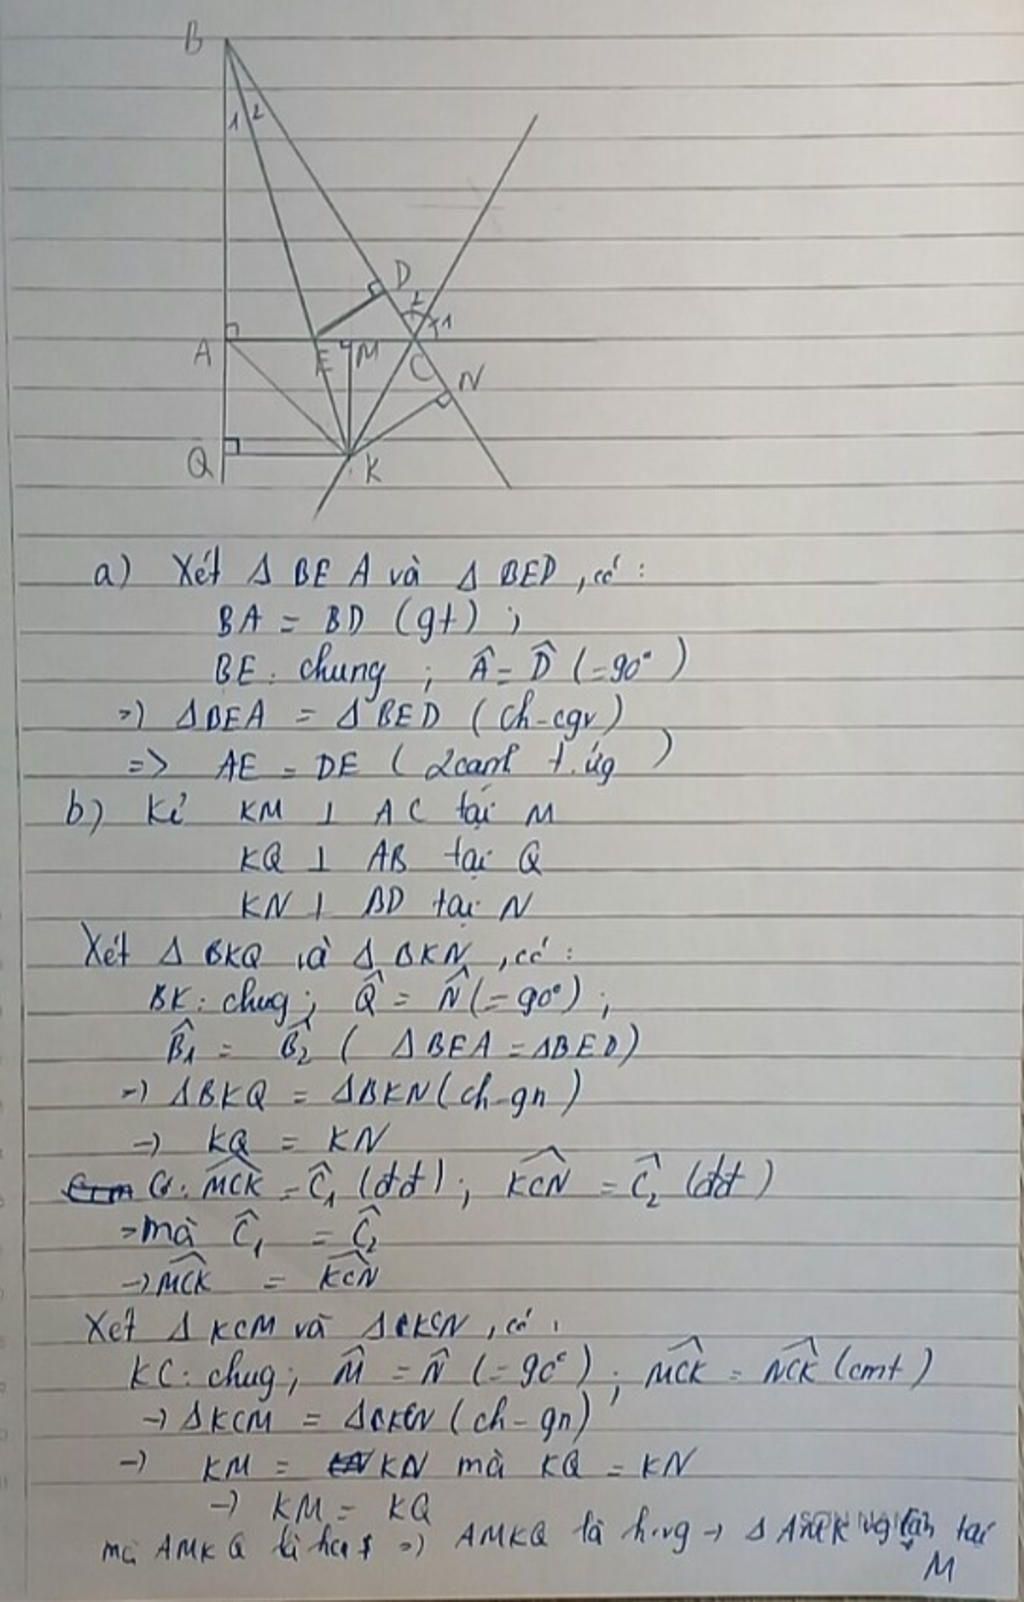 B
1 2
D
2 1
A E M C N
Q K
a) Xét Δ BEA và Δ BED, có :
BA = BD (gt) ;
BE : chung ; Â = D̂ (= 90°)
=> ΔBEA = ΔBED (ch-cgv)
=> AE = DE ( 2 cạnh t.ứg )
b) Kẻ KM ⊥ AC tại M
KQ ⊥ AB tại Q
KN ⊥ BD tại N
Xét Δ BKQ và Δ BKN, có :
BK : chug ; Q̂ = N̂ (= 90°) ;
B̂₁ = B̂₂ ( ΔBEA = ΔBED)
-> ΔBKQ = ΔBKN (ch-gn)
-> KQ = KN
Có: MCK̂ = Ĉ₁ (đđ) ; KCN̂ = Ĉ₂ (đđ)
mà Ĉ₁ = Ĉ₂
-> MCK̂ = KCN̂
Xét Δ KCM và Δ KCN, có :
KC : chug ; M̂ = N̂ (= 90°) ; MCK̂ = NCK̂ (cmt)
-> ΔKCM = ΔKCN (ch-gn)
-> KM = KN mà KQ = KN
-> KM = KQ
mà AMKQ là => AMKQ là h.vg -> Δ AMK vg cân tại
M